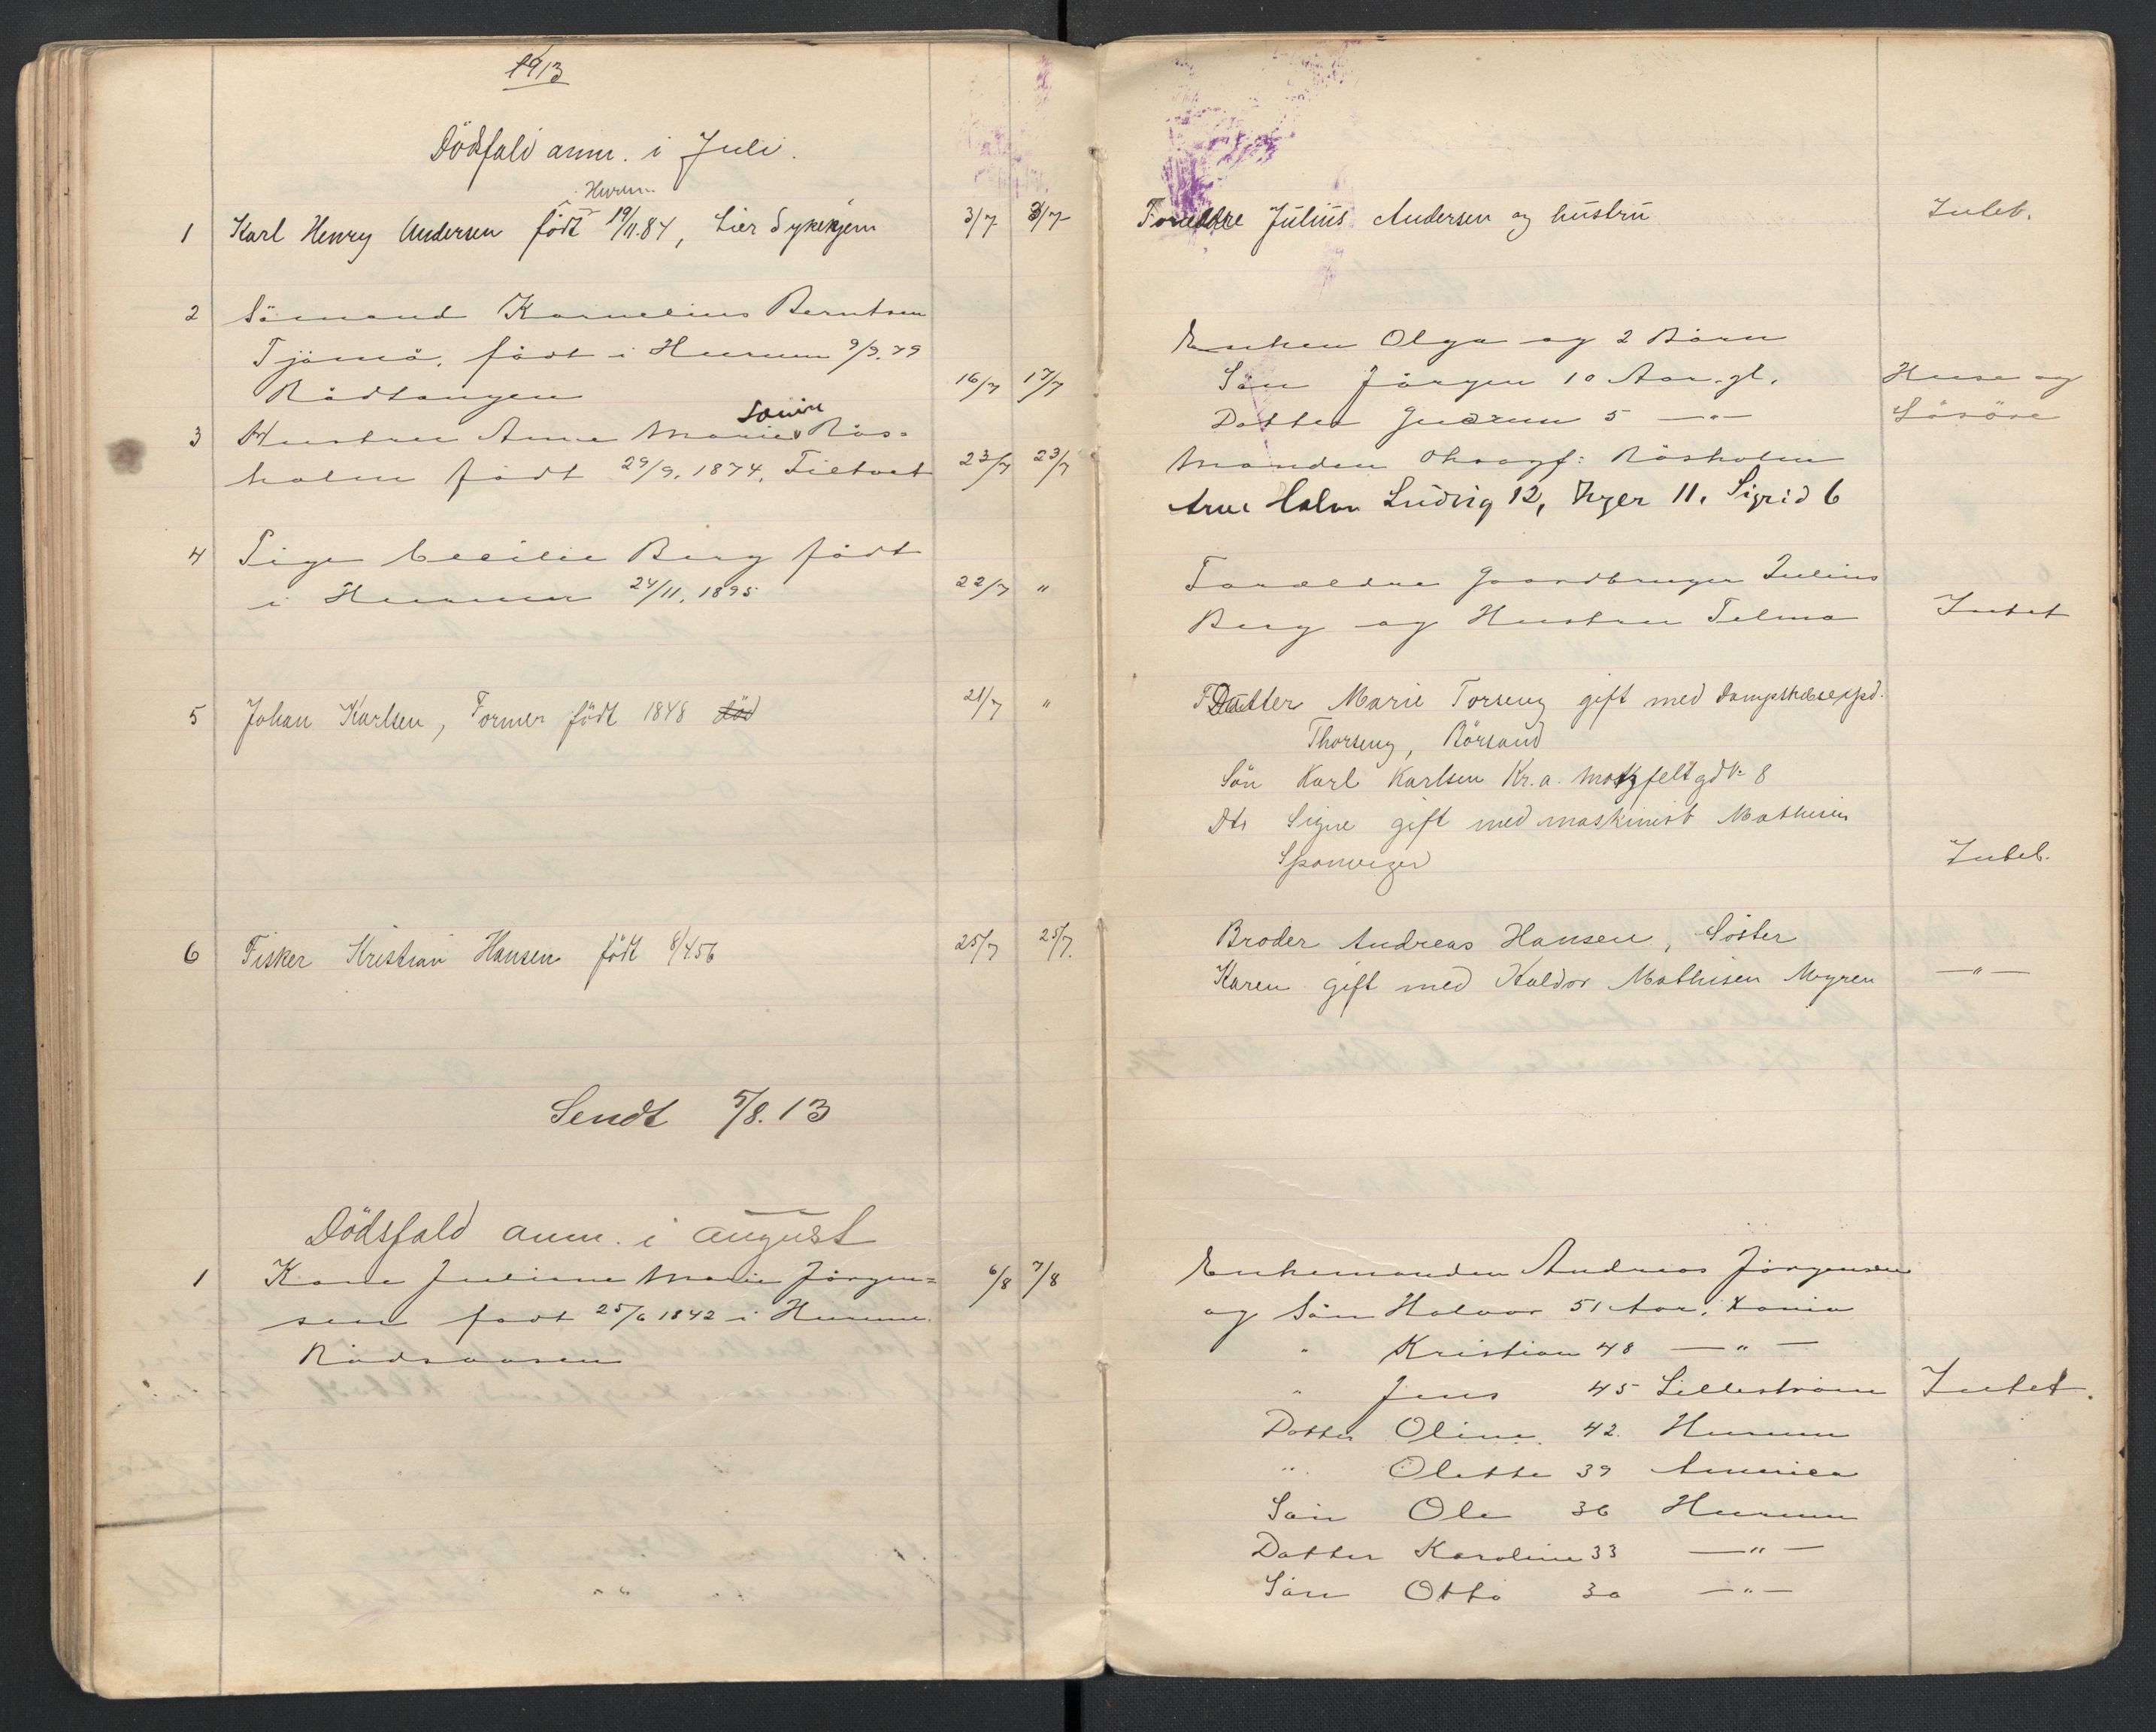 1913
Dödsfald anm. i Juli.
Hurum
1 Karl Henry Andersen født 19/11.84, Lier Sykehjem 3/7 3/7
2 Sömand Kornelius Berntsen
Tjömö, født i Hurum 9/9.79
Rödtangen 16/7 17/7
Lovise
3 Hustru Anne Marie Rös-
holm født 29/9. 1874, Tiltvet 23/7 23/7
4 Pige Cecilie Berg født
i Hurum 24/11. 1895 22/7 "
5 Johan Karlsen, Former født 1848 död 21/7 "
6 Fisker Kristian Hansen født 8/4 56 25/7 25/7.
Sendt 5/8.13
Dödsfald anm. i august
1 Kone Juliane Marie Jörgen=
sen født 25/6 1842 i Hurum. 6/8 7/8
Rödsaasen
Forældre Julius Andersen og hustru Intet.
Enken Olga og 2 Börn
Sön Jörgen 10 Aar. gl. Huse og
Datter Gudrun 5 —"— Lösöre
Manden Rösholm
Arne Halvor Ludvig 12, Inger 11, Sigrid 6
Forældre Gaardbruger Julius
Berg og Hustru Telma Intet
Datter Marie Torseng gift med Dampskibsexpd.
Thorseng, Börsand
Sön Karl Karlsen Kr.a. Motzfeltgd № 8
Dtr Signe gift med maskinist Mathisen
Intet.
Broder Andreas Hansen, Söster
Karen gift med Haldor Mathisen Myren —"—
Enkemanden Andreas Jörgensen
og Sön Halvor 51 Aar,
" Kristian 48 —"—
" Jens 45 Lilleström Intet.
Datter Oline 42. Hurum
" Olette 39 America
Sön Ole 36 Hurum
Datter Karoline 33 —"—
Sön Otto 30 —"—